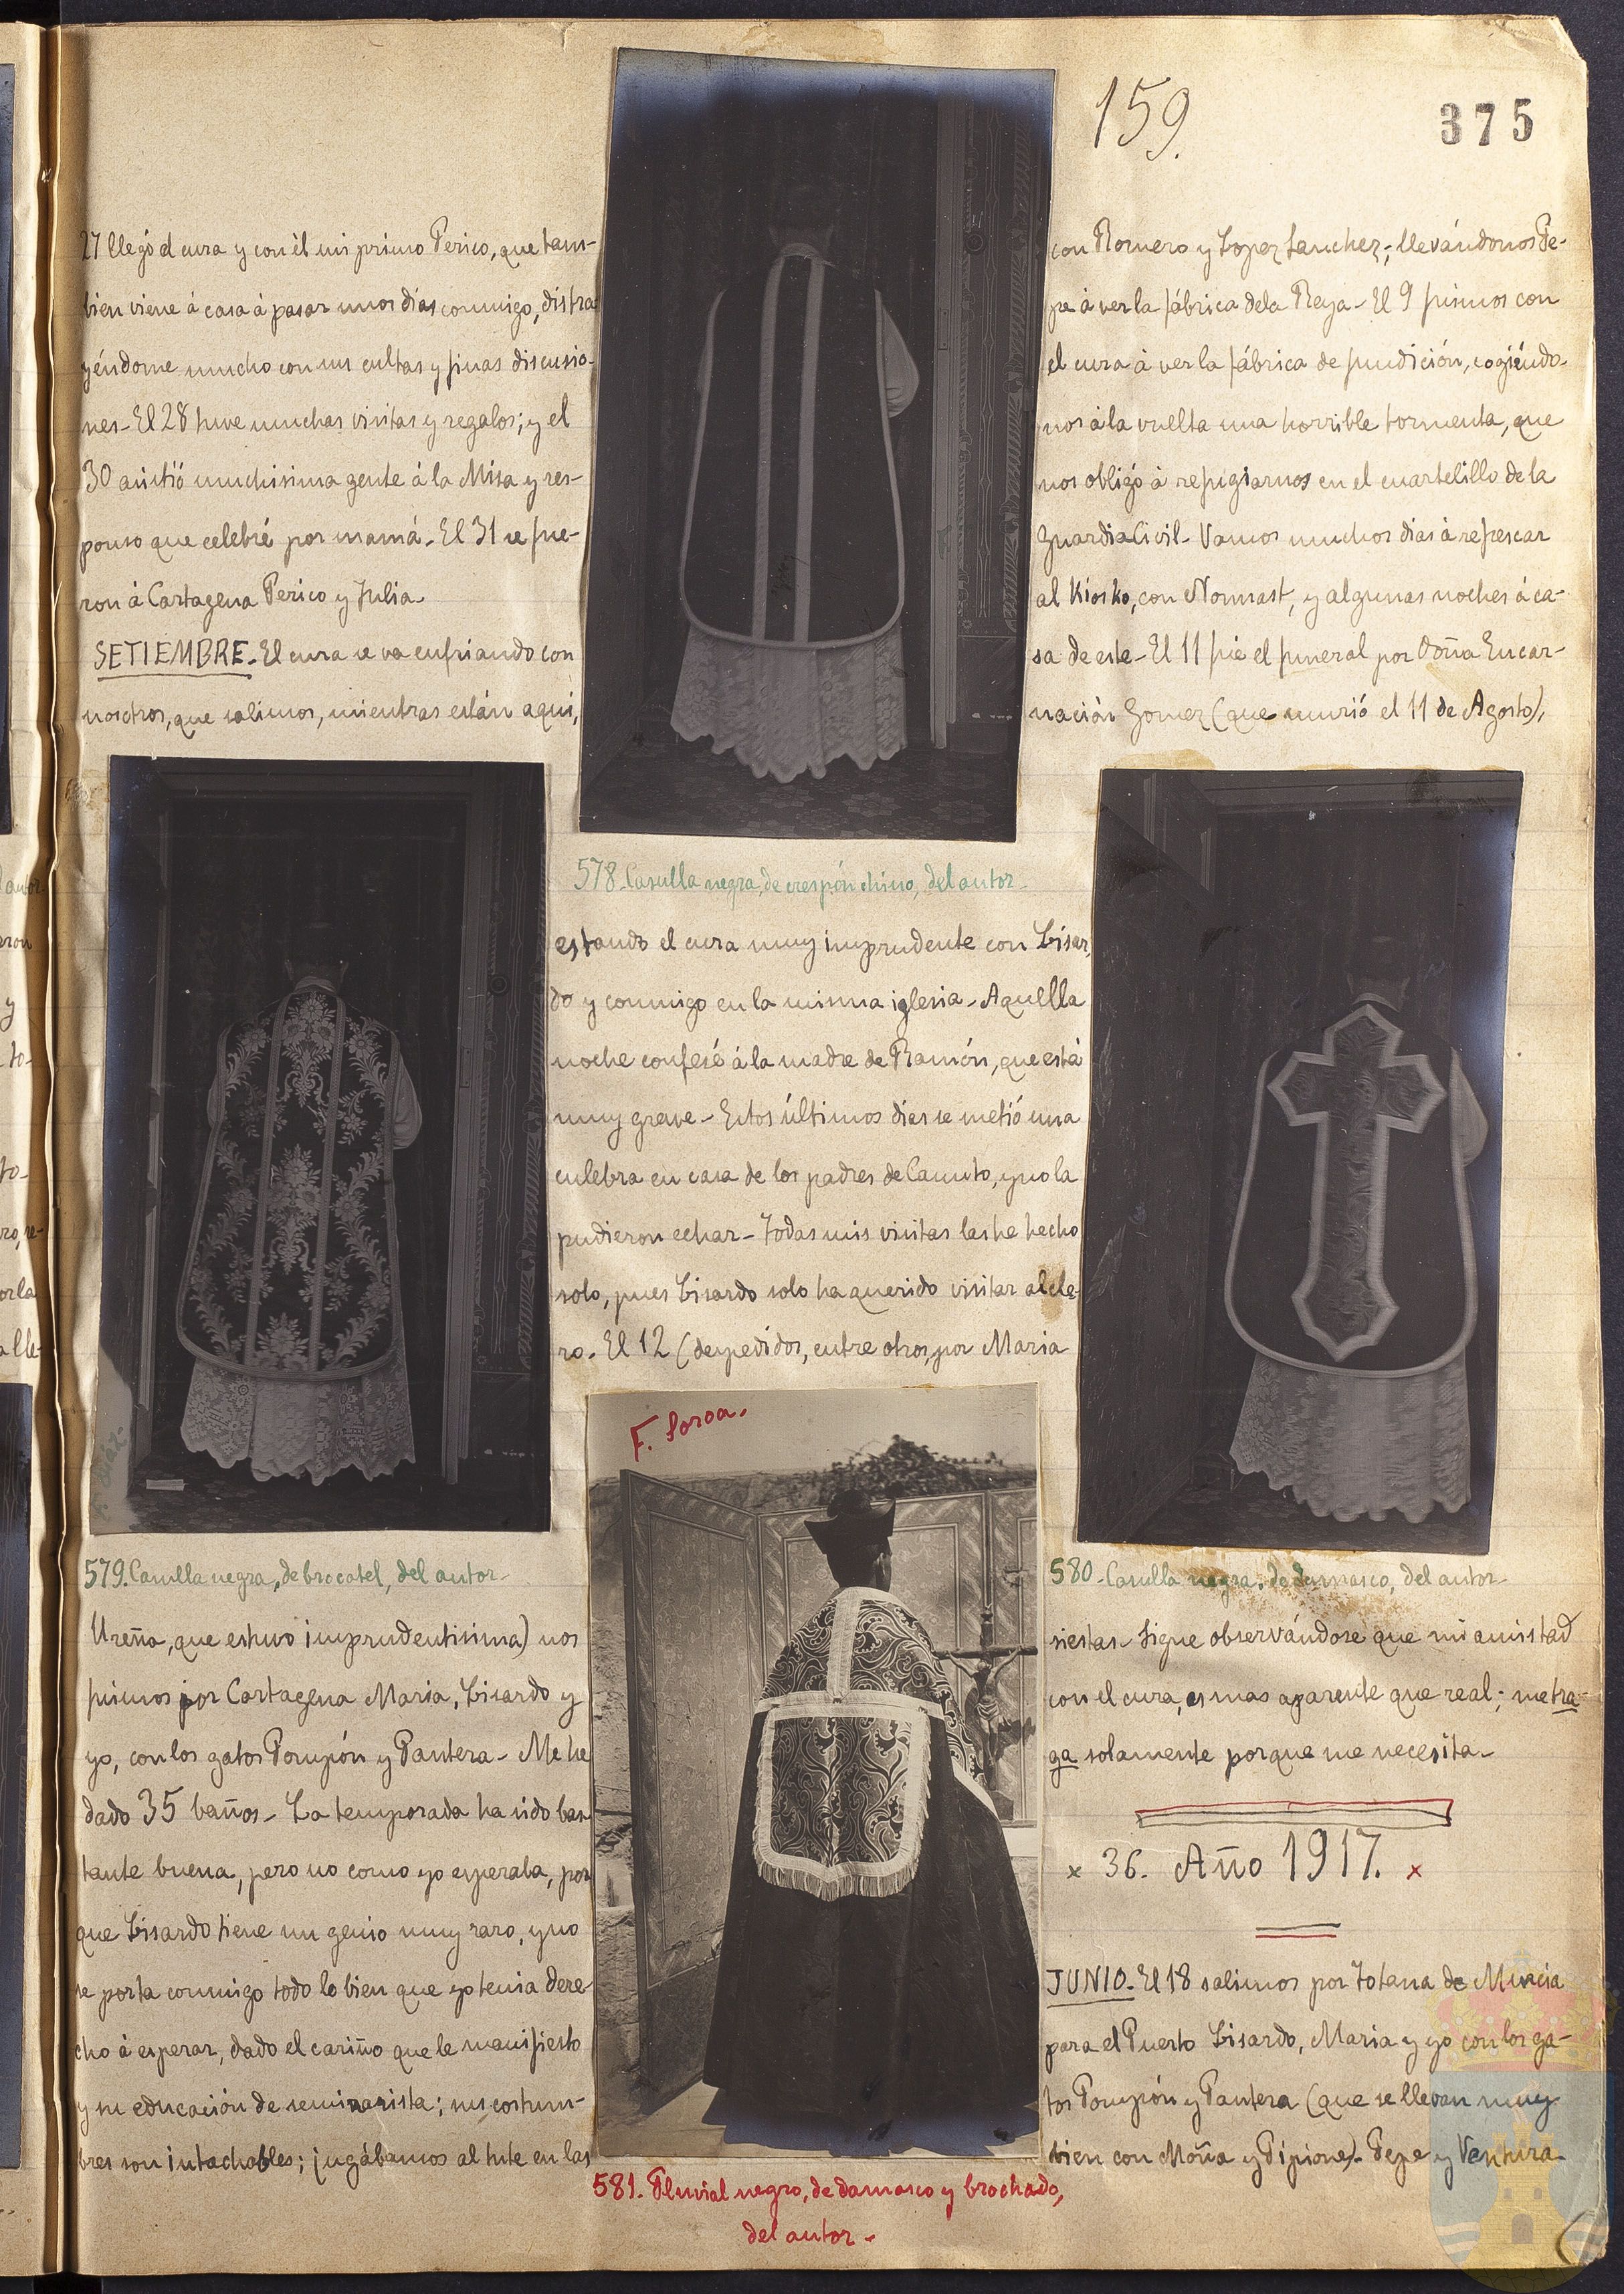 159.
375
27 llegó el cura y con él mi primo Perico, que tam-
bien viene á casa á pasar unos días conmigo, distra-
yéndome mucho con sus cultas y finas discusio-
nes - El 28 tuve muchas visitas y regalos; y el
30 asistió muchisima gente á la Misa y res-
ponso que celebré por mamá - El 31 se fue-
ron á Cartagena Perico y Julia -
SETIEMBRE - El cura se va enfriando con
nosotros, que salimos, mientras están aqui,
con Romero y Lopez Sanchez; llevándonos Pe-
pe á ver la fábrica de la Raja - El 9 fuimos con
el cura á ver la fábrica de fundición, cogiéndo-
nos á la vuelta una horrible tormenta, que
nos obligó á refugiarnos en el cuartelillo de la
Guardia Civil - Vamos muchos dias á refrescar
al Kiosko, con Nonnast, y algunas noches á ca-
sa de este - El 11 fué el funeral por Doña Encar-
nación Gomez (que murió el 11 de Agosto),
578 - Casulla negra, de crespón chino, del autor -
estando el cura muy imprudente con Lisar-
do y conmigo en la misma iglesia - Aquella
noche confesé á la madre de Ramón, que está
muy grave - Estos últimos dias se metió una
culebra en casa de los padres de Canuto, y no la
pudieron echar - Todas mis visitas las he hecho
solo, pues Lisardo solo ha querido visitar al cle-
ro - El 12 (despedidos, entre otros, por Maria
579. Casulla negra, de brocatel, del autor -
Ureña, que estuvo imprudentisima) nos
fuimos por Cartagena Maria, Lisardo y
yo, con los gatos Pompón y Pantera - Me he
dado 35 baños - La temporada ha sido bas-
tante buena, pero no como yo esperaba, por
que Lisardo tiene un genio muy raro, y no
se porta conmigo todo lo bien que yo tenia dere-
cho á esperar, dado el cariño que le manifiesto
y su educación de seminarista; sus costum-
bres son intachables; jugábamos al tute en las
F. Soroa.
581. Pluvial negro, de damasco y brochado,
del autor -
580 - Casulla negra, de damasco, del autor -
siestas - Sigue observándose que mi amistad
con el cura, es mas aparente que real; me tra-
ga solamente porque me necesita -
x 36. Año 1917. x
JUNIO - El 18 salimos por Totana de Murcia
para el Puerto Lisardo, Maria y yo con los ga-
tos Pompón y Pantera (que se llevan muy
bien con Moña y Pipione) - Pepe y Ventura -